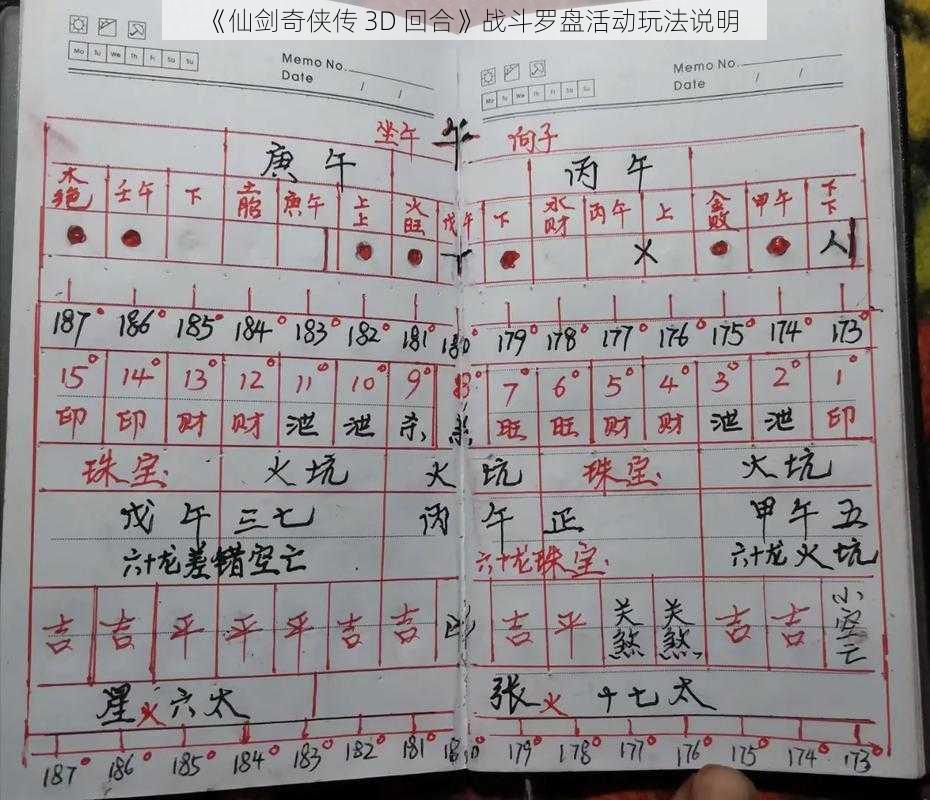 《仙剑奇侠传 3D 回合》战斗罗盘活动玩法说明
Memo No.
Date / /
Mo Tu We Th Fr Sa Su
Memo No.
Date / /
Mo Tu We Th Fr Sa Su
坐午 午 向子
庚午 丙午
木绝 壬午 下 土胎 庚午 上上 火旺 戊午 下 水财 丙午 上 金败 甲午 下下
187° 186° 185° 184° 183° 182° 181° 180° 179° 178° 177° 176° 175° 174° 173°
15° 14° 13° 12° 11° 10° 9° 8° 7° 6° 5° 4° 3° 2° 1°
印 印 财 财 泄 泄 杀 杀 旺 旺 财 财 泄 泄 印
珠宝 火坑 火坑 珠宝 火坑
戊午三七 丙午正 甲午五
六十龙差错空亡 六十龙珠宝 六十龙火坑
吉 吉 平 平 平 吉 吉 吉 平 关煞 关煞 吉 吉 小空亡
星火六太 张火十七太
187° 186° 185° 184° 183° 182° 181° 180° 179° 178° 177° 176° 175° 174° 173°